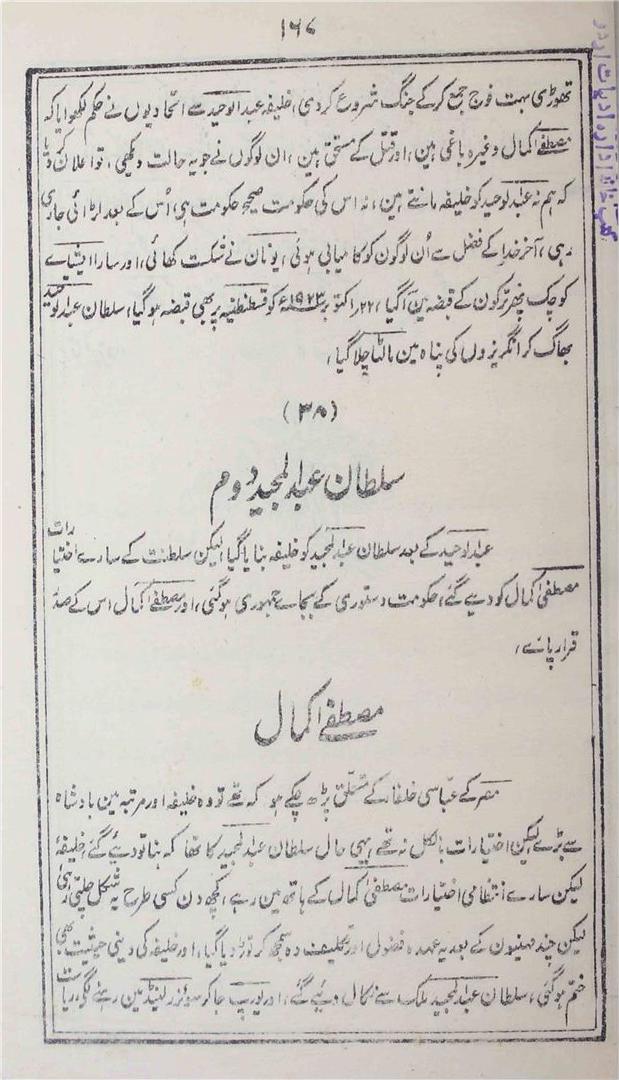 ۱۶۷
تھوڑی بہت فوج جمع کرکے جنگ شروع کردی، خلیفہ عبدالوحید سے اتحادیوں نے حکم لکھوایا کہ
مصطفےٰ کمال وغیرہ باغی ہین، اور قتل کے مستحق ہین، ان لوگوں نے جو یہ حالت دیکھی، تو اعلان کر دیا
کہ ہم نہ عبدالوحید کو خلیفہ مانتے ہین، نہ اس کی حکومت صحیح حکومت ہی، اُس کے بعد لڑائی جاری
رہی، آخر خدا کے فضل سے اُن لوگون کو کامیابی ہوئی، یونان نے شکست کھائی، اور سارا ایشیاے
کوچک پھر ترکون کے قبضہ مین آگیا، ۲۲؍ اکتوبر ۱۹۲۳ء کو قسطنطنیہ پر بھی قبضہ ہوگیا، سلطان عبدالوحید
بھاگ کر انگریزوں کی پناہ مین مالٹا چلا گیا،
(۳۸)
سلطان عبدالمجید دوم
عبدالوحید کے بعد سلطان عبدالمجید کو خلیفہ بنایا گیا، لیکن سلطنت کے سارے اختیارات
مصطفیٰ کمال کو دیے گئے، حکومت دستوری کے بجاے جمہوری ہوگئی، اور مصطفےٰ کمال اس کے صدر
قرار پائے،
مصطفےٰ کمال
مصر کے عباسی خلفاء کے متعلق پڑھ چکے ہو کہ تھے تو وہ خلیفہ اور مرتبہ مین بادشاہ
سے بڑے لیکن اختیارات بالکل نہ تھے، یہی حال سلطان عبدالمجید کا تھا کہ بنا تو دیئے گئے خلیفہ
لیکن سارے انتظامی اختیارات مصطفیٰ کمال کے ہاتھ مین رہے، کچھ دن کسی طرح یہ شکل چلتی رہی
لیکن چند مہینون کے بعد یہ عہدہ فضول اور تکلیف دہ سمجھ کر توڑ دیا گیا، اور خلیفہ کی دینی حیثیت بھی
ختم ہوگئی، سلطان عبدالمجید ملک سے نکال دیئے گئے، اور یورپ جاکر سوئزرلینڈ مین رہنے لگے، ریاست